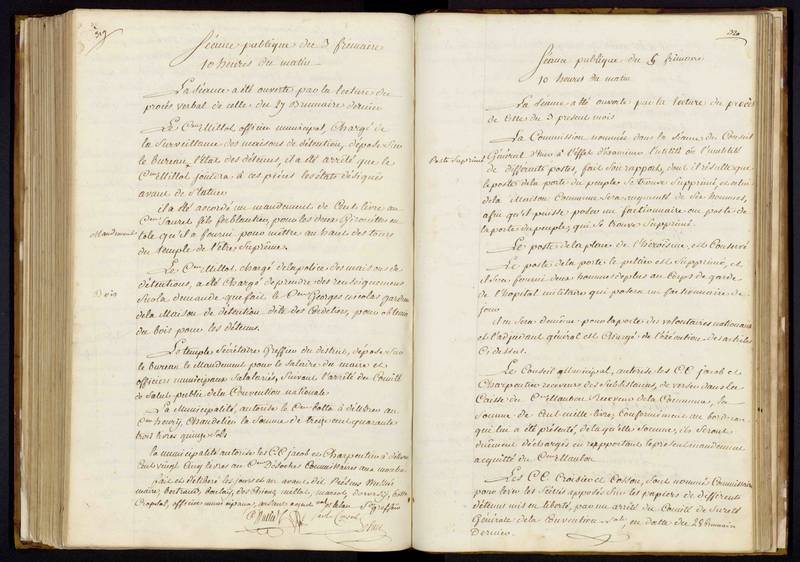 319
Séance publique du 3 frimaire
10 heures du matin
La séance a été ouverte par la lecture du
procès verbal de celle du 27 Brumaire dernier
Le Cen Millot officier municipal, Chargé de
la Surveillance des maisons de détention, dépose Sur
le bureau l'état des détenus, il a été arrêté que le
Cen Millot joindra à ces pièces les états désignés
avant de Statuer
il a été accordé un mandement de Cent livres au
Cen Sauret fils ferblantier, pour les deux Girouettes en
Mandement
tole qu'il a fourni pour mettre au haut des tours
du temple de l'être Suprême.
Le Cen Millot, chargé de la police des maisons de
détentions, a été Chargé de prendre des renseignemens
Bois
Sur la demande que fait le Cen Georges nicolas gardien
de la Maison de détention dite des Cordeliers, pour obtenir
du bois pour les détenus.
Le Sécrétaire Greffier du district, dépose Sur
le bureau le Mandement pour le Salaire du maire et
officiers municipaux Salariés, Suivant l'arrêté du Comité
de Salut public de la Convention nationale
La Municipalité, autorise le Cen botta à délivrer au
Cen henry, Chandelier la Somme de trois cent quarante
trois livres quinze Sols
la municipalité autorise les CC jacob et Charpentier à délivrer
Cent vingt Cinq livres au Cen Desoches Commissaire aux marchés
fait et délibéré les jour et an avant dit Présens
maire, bertrand, millot, botta
officiers municipaux
320
Séance publique du 4 frimaire
10 heures du matin
La Séance a été ouverte par la lecture du procès
de Celle du 3 présent mois
La Commission nommée dans la Séance du Conseil
Général d'hier à l'effet d'examiner l'utilité ou l'inutilité
Poste Supprimé
de différents postes, fait Son rapport, dont il résulte que
le poste de la porte du peuple Se trouve Supprimé, et celui
de la Maison Commune Sera augmenté de Six hommes,
afin qu'il puisse poser un factionnaire au poste de
la porte du peuple, qui Se trouve Supprimé.
Le poste de la place de l'héroïsme, est Conservé
Le poste de la porte le peletier est Supprimé, et
il Sera fourni deux hommes de plus au Corps de garde
de l'hopital militaire qui posera un factionnaire de
jour
il en Sera de même pour la porte des volontaires nationaux
et l'adjudant général est Chargé de l'exécution des articles
Ci dessus.
Le Conseil Municipal, autorise les CC jacob et
Charpentier receveurs des Subsistances, de verser dans la
Caisse du Cen Mauton Receveur de la Commune, la
Somme de Cent mille livres, Conformément au bordereau
qui lui a été présenté, de laquelle Somme, ils Seront
duement déchargés en rapportant le présent mandement
acquitté du Cen Mauton.
Les CC Croisier et Cosson, Sont nommés Commissaires
pour lever les Scellés apposés Sur les papiers de différents
détenus mis en liberté, par un arrêté du Comité de Sureté
Générale de la Convention nale, en datte du 28 Brumaire
Dernier.